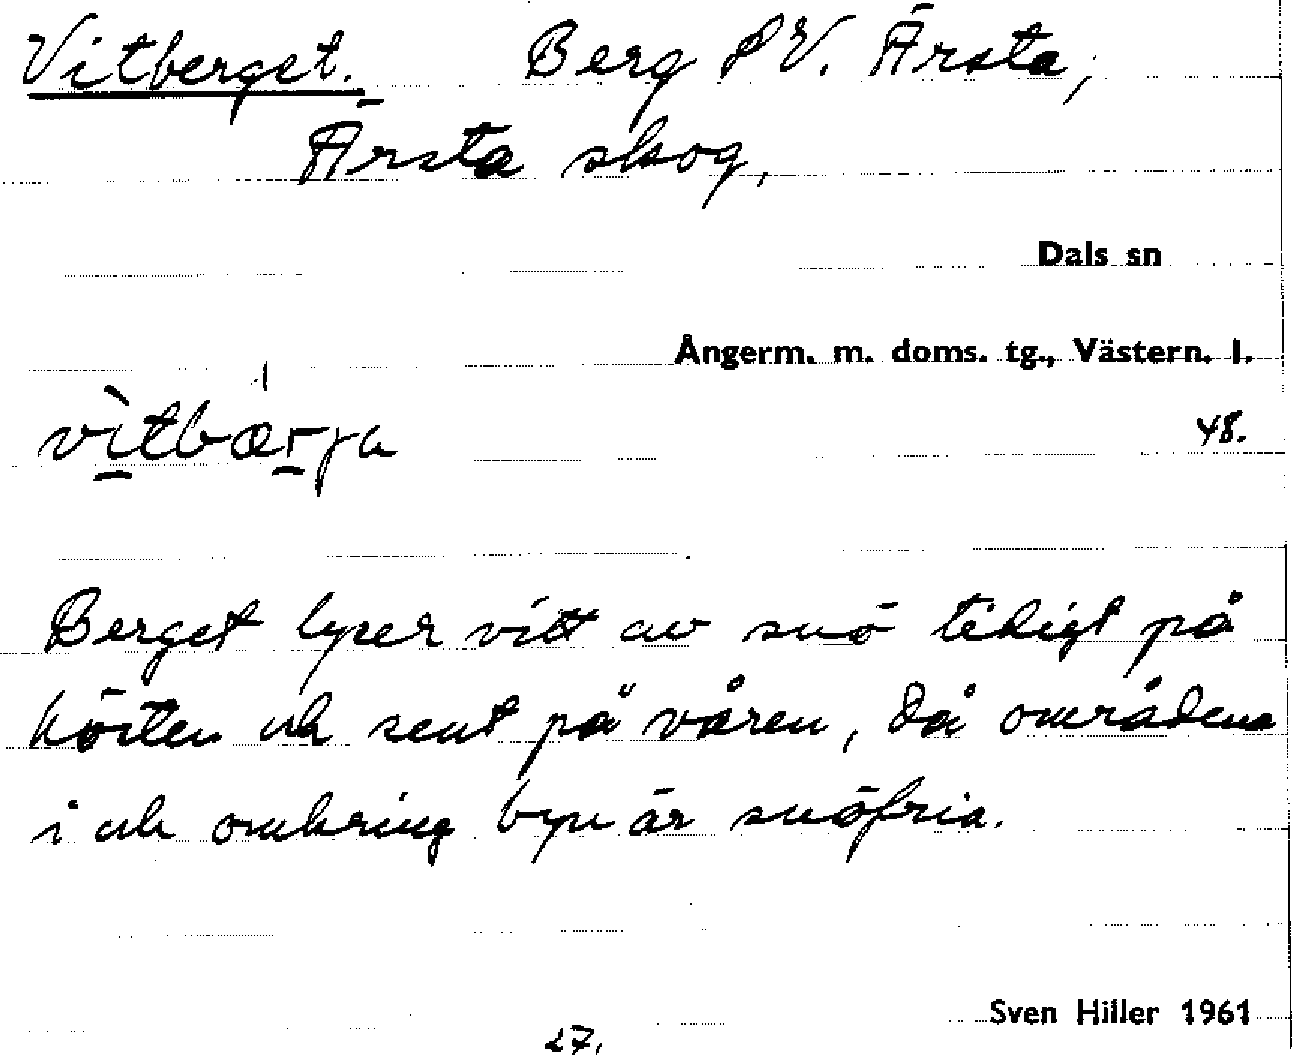 Vitberget. Berg SV. Ärsta,
Ärsta skog,
Dals sn
Ångerm. m. doms. tg., Västern. l.
vìtbær̲ja
48.
Berget lyser vitt av snö tidigt på
hösten och sent på våren, då områdena
i och omkring byn är snöfria.
Sven Hiller 1961
27.